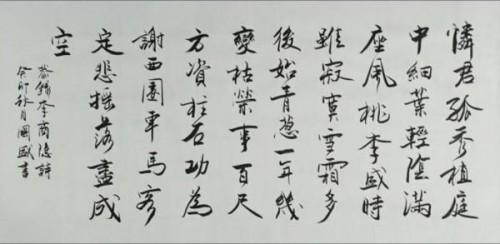 憐君孤秀植庭
中細葉輕陰滿
座風桃李盛時
雖寂寞雪霜多
後始青葱一年幾
變枯榮事百尺
方資柱石功為
謝西園車馬客
定悲搖落盡成
空
恭錄李商隱詩
癸卯秋月國盛書